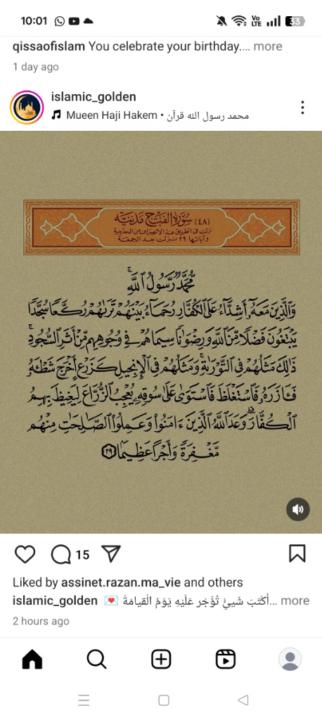 10:01
Vo LTE
33
qissaofislam You celebrate your birthday.... more
1 day ago
islamic_golden
Mueen Haji Hakem • محمد رسول الله قرآن
(٤٨) سُورَةُ الفَتْحِ مَدَنِيَّة
وآياتها ٢٩ نزلت بعد الجمعة
مُحَمَّدٌ رَسُولُ اللَّهِ
وَالَّذِينَ مَعَهُ أَشِدَّاءُ عَلَى الْكُفَّارِ رُحَمَاءُ بَيْنَهُمْ تَرَاهُمْ رُكَّعًا سُجَّدًا
يَبْتَغُونَ فَضْلًا مِنَ اللَّهِ وَرِضْوَانًا سِيمَاهُمْ فِي وُجُوهِهِمْ مِنْ أَثَرِ السُّجُودِ
ذَلِكَ مَثَلُهُمْ فِي التَّوْرَيةِ وَمَثَلُهُمْ فِي الْإِنْجِيلِ كَزَرْعٍ أَخْرَجَ شَطْئَهُ
فَآزَرَهُ فَاسْتَغْلَظَ فَاسْتَوَى عَلَى سُوقِهِ يُعْجِبُ الزُّرَّاعَ لِيَغِيظَ بِهِمُ
الْكُفَّارَ وَعَدَ اللَّهُ الَّذِينَ ءَامَنُوا وَعَمِلُوا الصَّالِحَاتِ مِنْهُمْ
مَغْفِرَةً وَأَجْرًا عَظِيمًا ٢٩
15
Liked by assinet.razan.ma_vie and others
islamic_golden 💌 أَكْتُبْ شَيئْ تُؤْجَر عَلَيْهِ يَوْمَ الْقيامَةَ... more
2 hours ago